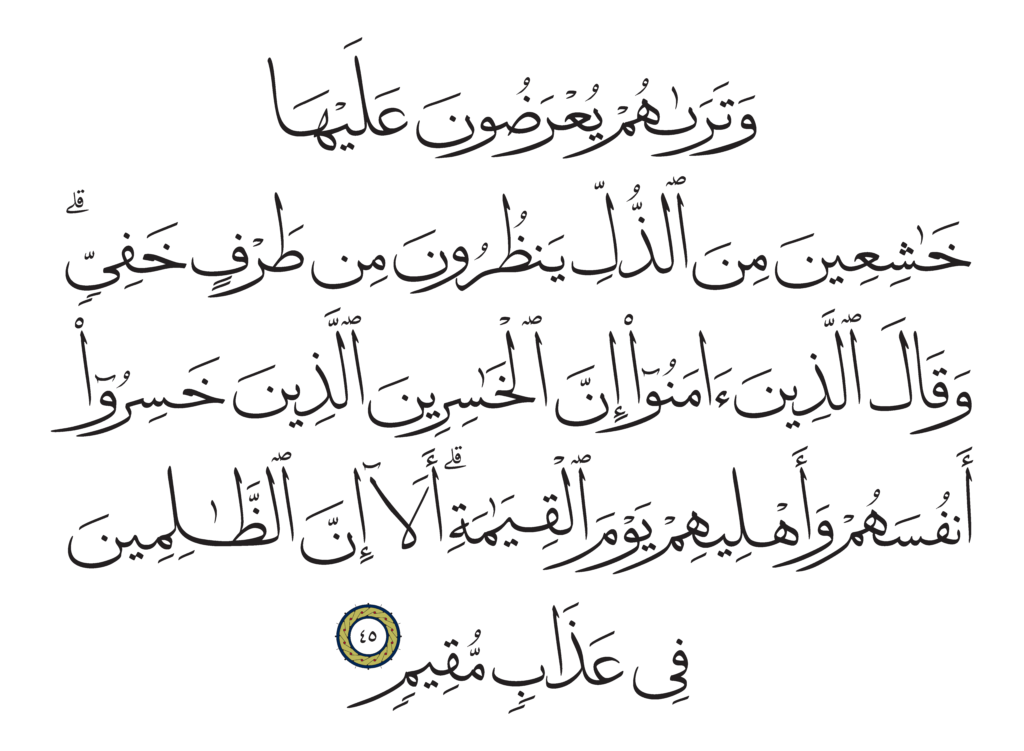 وَتَرَىٰهُمْ يُعْرَضُونَ عَلَيْهَا
خَـٰشِعِينَ مِنَ ٱلذُّلِّ يَنظُرُونَ مِن طَرْفٍ خَفِىٍّ ۗ
وَقَالَ ٱلَّذِينَ ءَامَنُوٓا۟ إِنَّ ٱلْخَـٰسِرِينَ ٱلَّذِينَ خَسِرُوٓا۟
أَنفُسَهُمْ وَأَهْلِيهِمْ يَوْمَ ٱلْقِيَـٰمَةِ ۗ أَلَآ إِنَّ ٱلظَّـٰلِمِينَ
فِى عَذَابٍ مُّقِيمٍ ٤٥